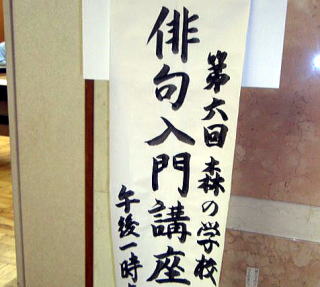 第六回 森の学校
俳句入門講座
午後一時